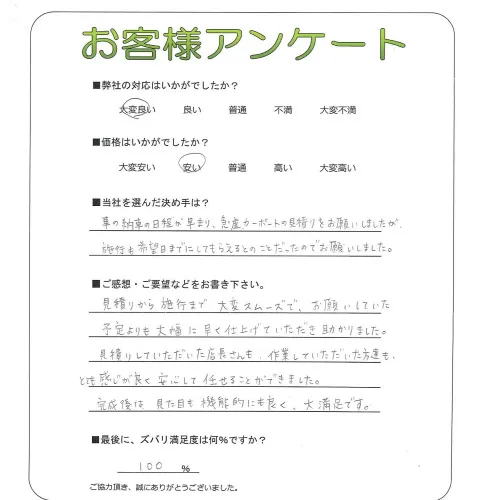 お客様アンケート
■弊社の対応はいかがでしたか?
大変良い 良い 普通 不満 大変不満
■価格はいかがでしたか?
大変安い 安い 普通 高い 大変高い
■当社を選んだ決め手は?
車の納車の日程が早まり、急遽カーポートの見積りをお願いしましたが、
施行も希望日までにしてもらえるとのことだったのでお願いしました。
■ご感想・ご要望などをお書き下さい。
見積りから施行まで大変スムーズで、お願いしていた
予定よりも大幅に早く仕上げていただき助かりました。
見積りしていただいた店長さんも、作業していただいた方達も、
とても感じが良く安心して任せることができました。
完成後は見た目も機能的にも良く、大満足です。
■最後に、ズバリ満足度は何%ですか?
100 %
ご協力頂き、誠にありがとうございました。